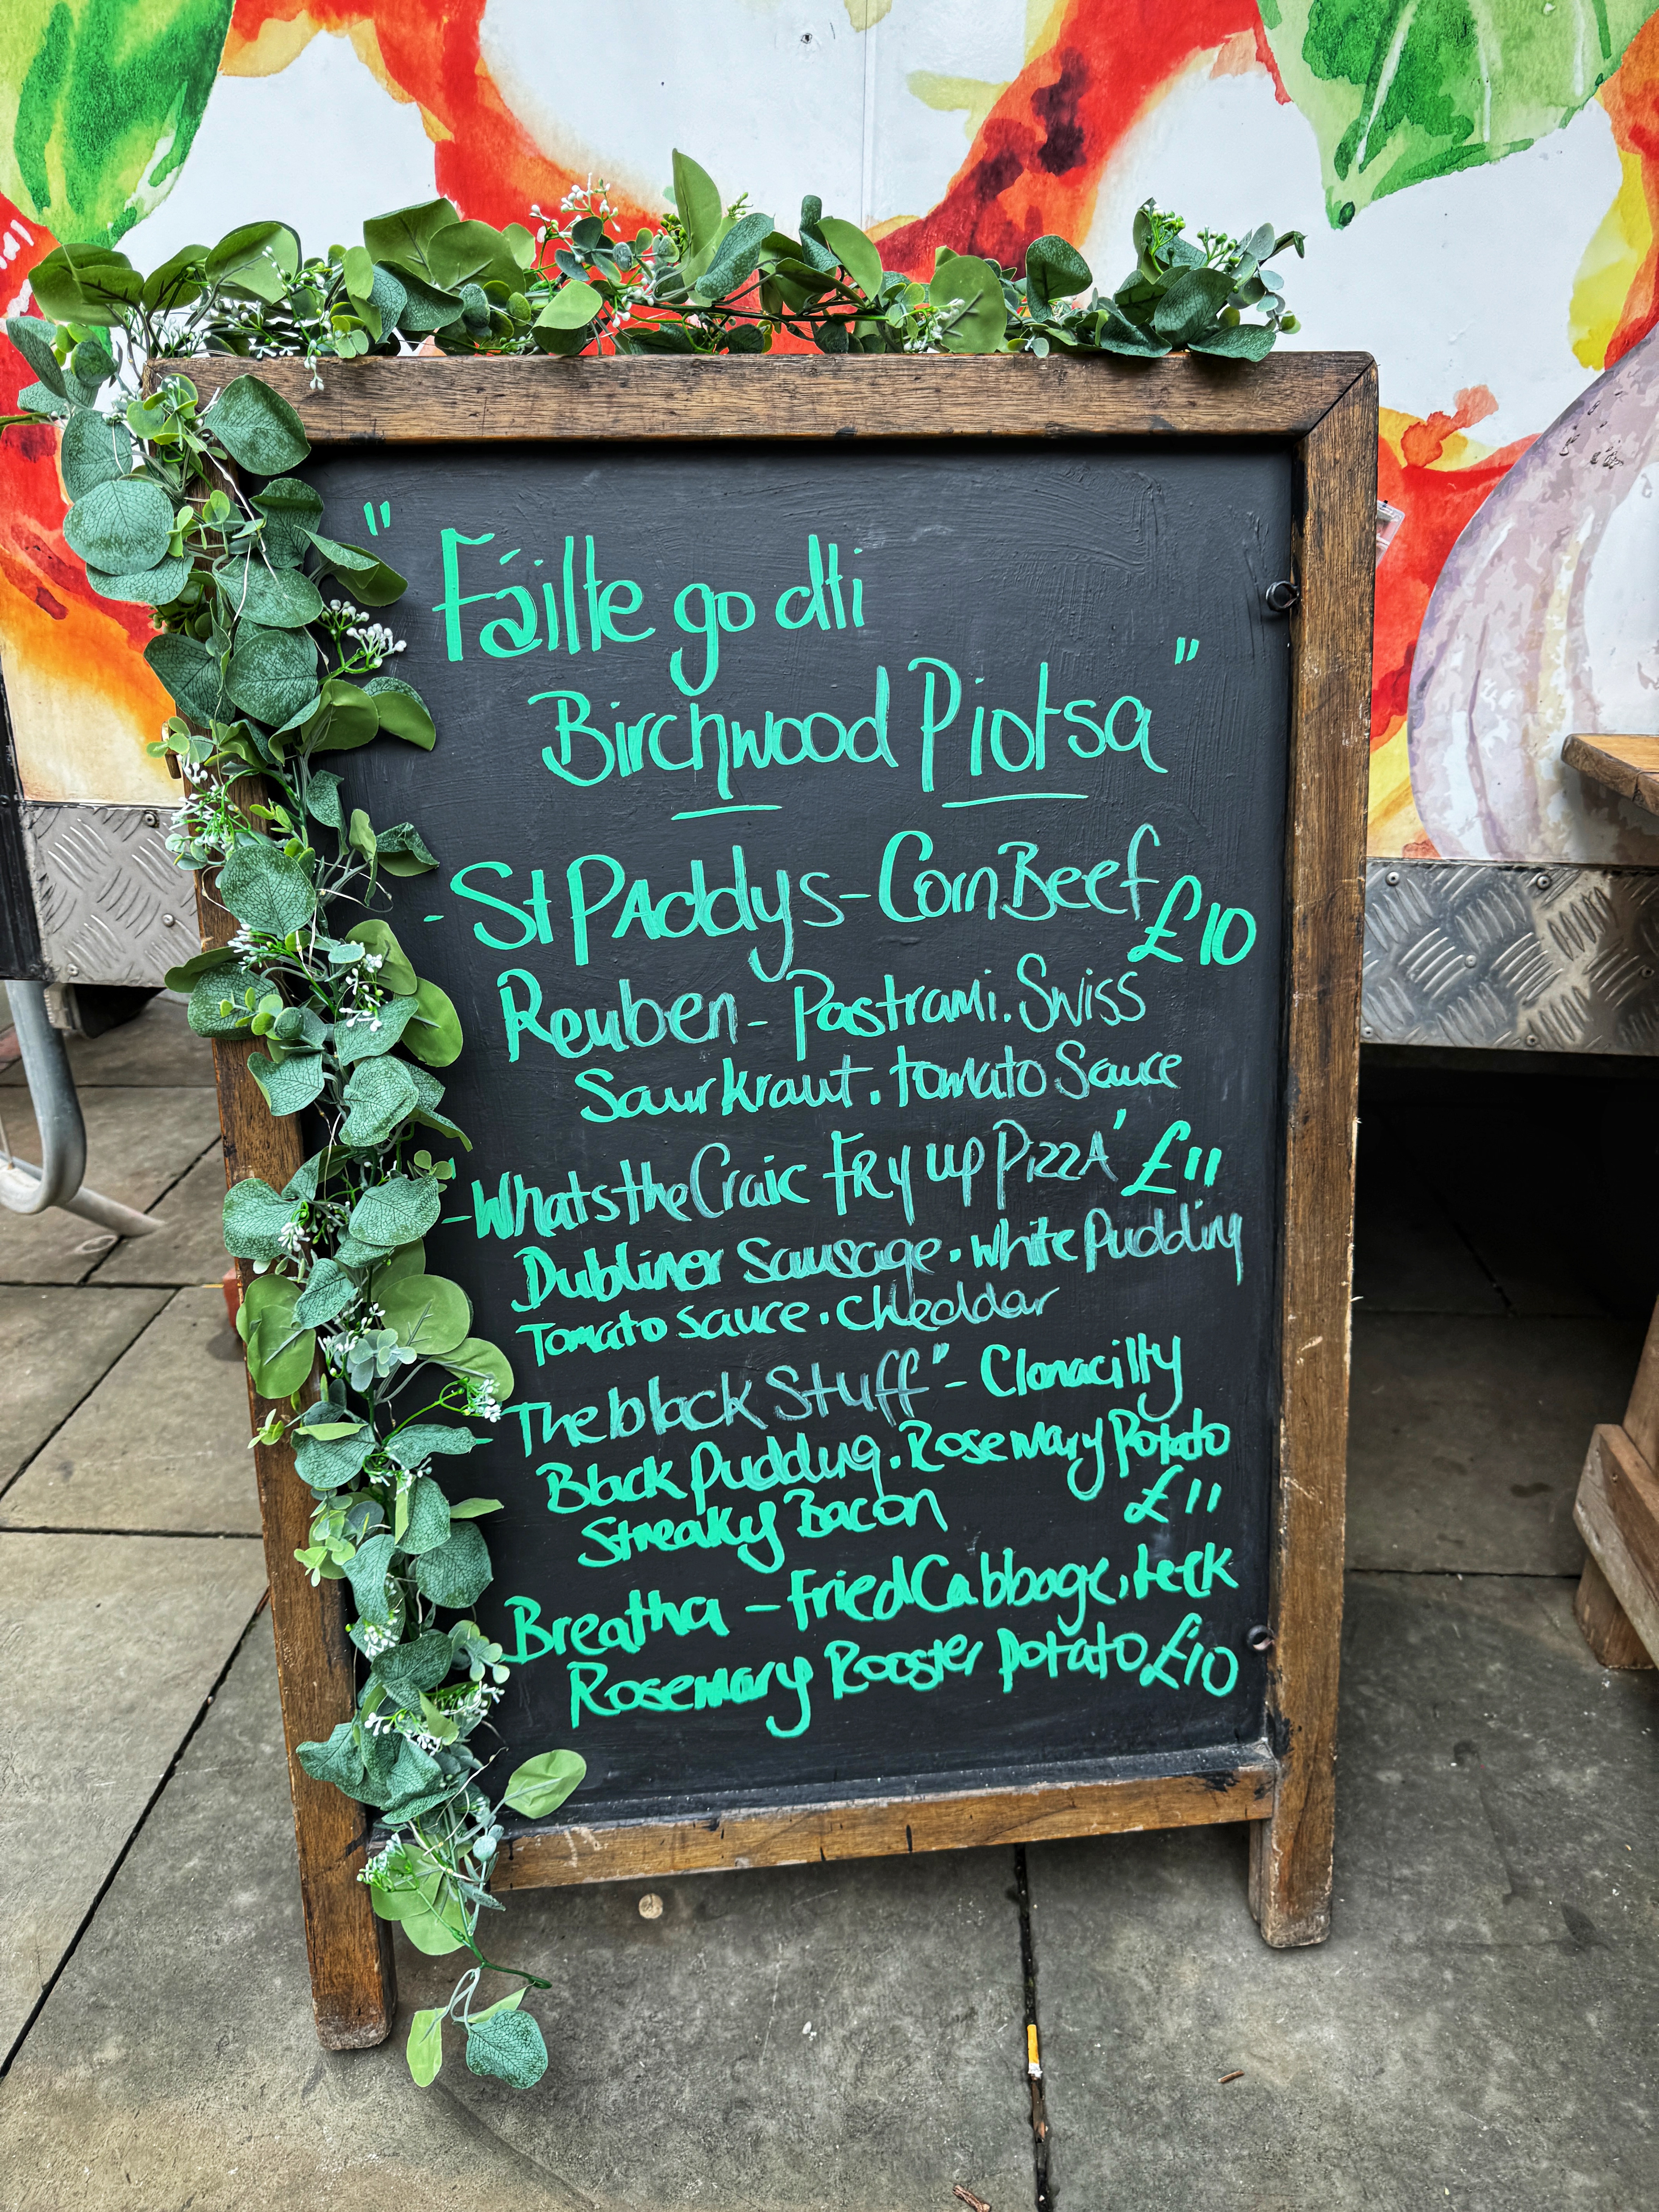 "Fáilte go dtí
Birchwood Píotsa"
- St PAddys - Corn Beef
£10
Reuben - Pastrami. Swiss
Saurkraut. tomato Sauce
- "Whats the Craic FRy up PizzA' £11
Dubliner Sausage. White Pudding
Tomato Sauce. Cheddar
The black Stuff" - Clonacilty
Black Pudding. Rosemary Potato
Streaky Bacon £11
Breatha - Fried Cabbage, Leek
Rosemary Rooster Potato £10